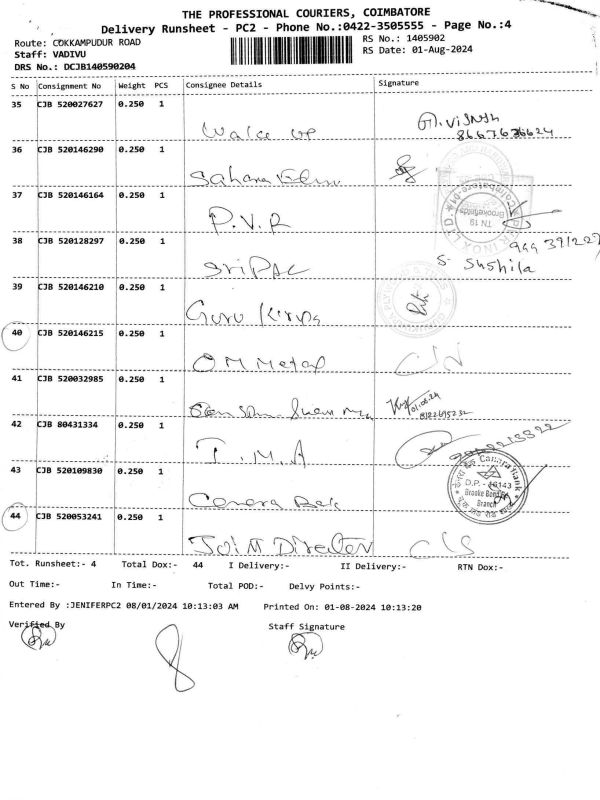 THE PROFESSIONAL COURIERS, COIMBATORE
Delivery Runsheet - PC2 - Phone No.:0422-3505555 - Page No.:4
Route: COKKAMPUDUR ROAD
RS No.: 1405902
Staff: VADIVU
RS Date: 01-Aug-2024
DRS No.: DCJB140590204
S No Consignment No Weight PCS Consignee Details Signature
35 CJB 520027627 0.250 1
Wake up
36 CJB 520146290 0.250 1
Sahana
37 CJB 520146164 0.250 1
P.V.R
TN 19
Brookefields
38 CJB 520128297 0.250 1
Sri PAC
S. Sushila
39 CJB 520146210 0.250 1
Guru Kirpa
40 CJB 520146215 0.250 1
O M Metal
41 CJB 520032985 0.250 1
01.08.24
42 CJB 80431334 0.250 1
T.M.A
43 CJB 520109830 0.250 1
Canara Bank
D.P. - 16143
Brooke Bond
Branch
44 CJB 520053241 0.250 1
Joint Director
Tot. Runsheet:- 4 Total Dox:- 44 I Delivery:- II Delivery:- RTN Dox:-
Out Time:- In Time:- Total POD:- Delvy Points:-
Entered By :JENIFERPC2 08/01/2024 10:13:03 AM Printed On: 01-08-2024 10:13:20
Verified By Staff Signature